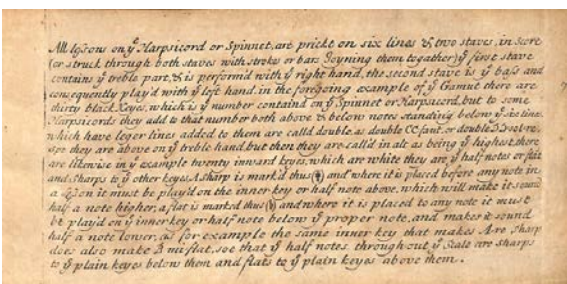 All lessons on yͤ Harpsicord or Spinnet, are prickt on six lines & two staves, in score
(or struck through both staves with strokes or bars Joyning them together) yͤ first stave
contains yͤ treble part, & is perform'd with yͤ right hand, the second stave is yͤ bass and
consequently play'd with yͤ left hand, in the foregoing example of yͤ Gamut there are
thirty black Keyes, which is yͤ number containd on yͤ Spinnet or Harpsicord, but to some
Harpsicords they add to that number both above & below notes standing below yͤ six lines
which have leger lines added to them are calld double, as double CC faut, or double DD sol-re,
soe they are above on yͤ treble hand but then they are call'd in alt as being yͤ highest, there
are likewise in yͤ example twenty inward keyes, which are white they are yͤ half notes or flats
and sharps to yͤ other keyes. A sharp is mark'd thus (#) and where it is placed before any note in
a lesson it must be play'd on the inner key or half note above, which will make it sound
half a note higher, a flat is markd thus (b) and where it is placed to any note it must
be play'd on yͤ inner key or half note below yͤ proper note, and makes it sound
half a note lower, as for example the same inner key that makes A-re sharp
does also make B mi flat, soe that yͤ half notes throughout yͤ Scale are sharps
to yͤ plain keyes below them and flats to yͤ plain keyes above them.